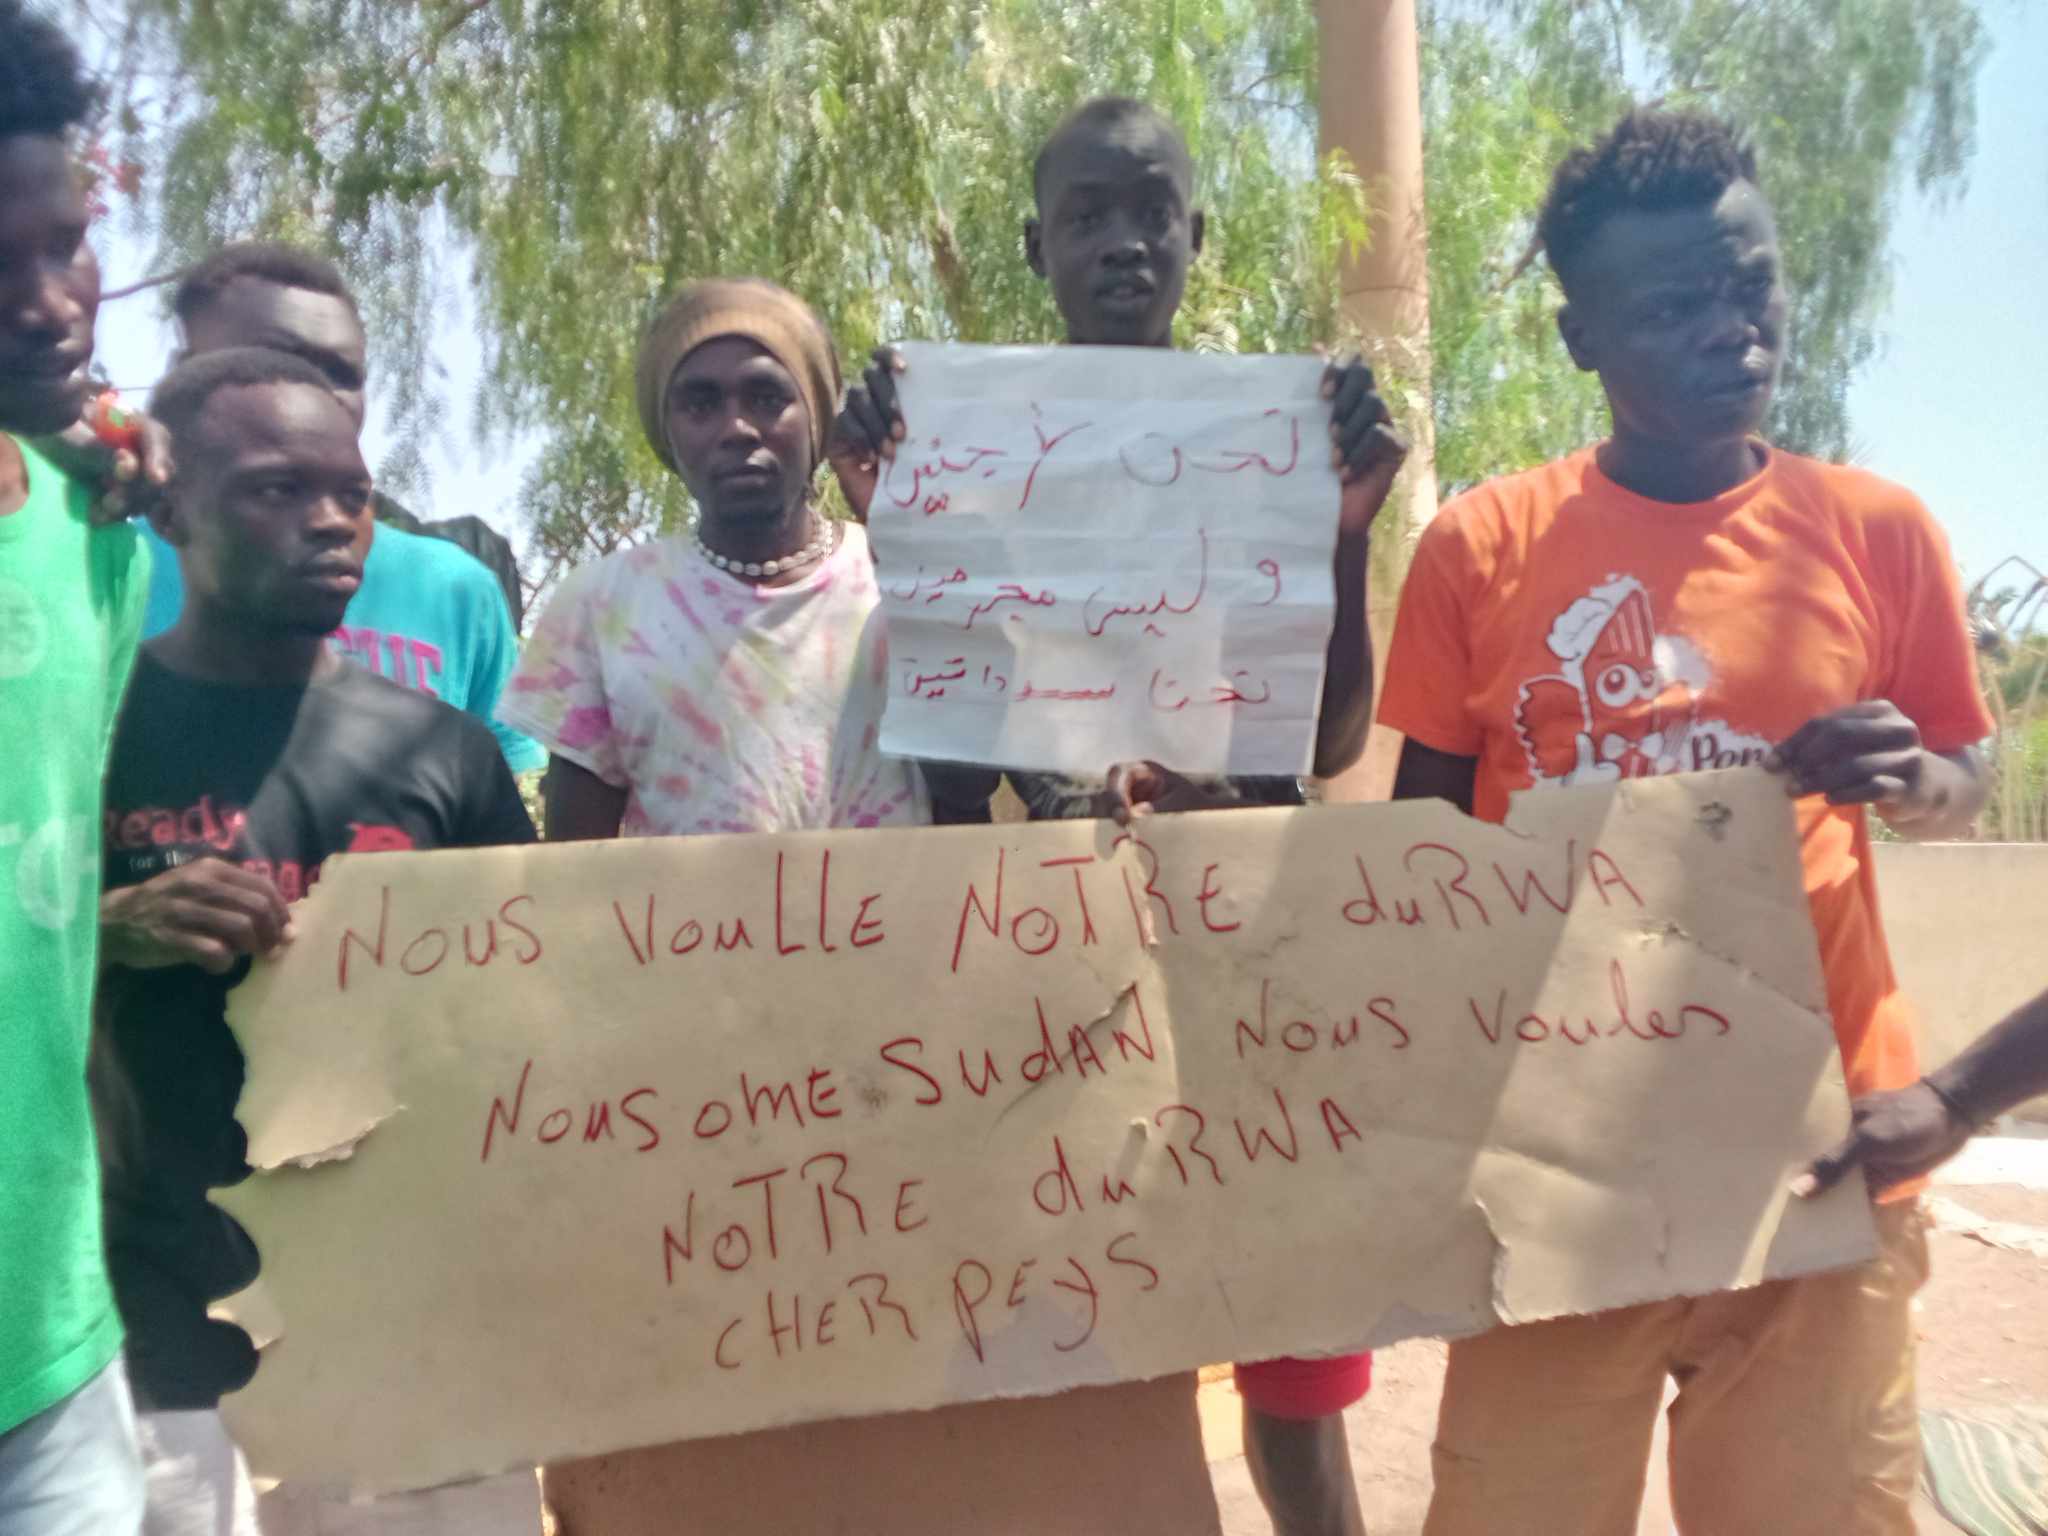 نحن لاجئين
و ليس مجرمين
نحنا سودانين
NOUS VOULLE NOTRE duRWA
NOUSOME SUdAN NOUS Voules
NOTRE duRWA
CHER PEYS
Ready
for the